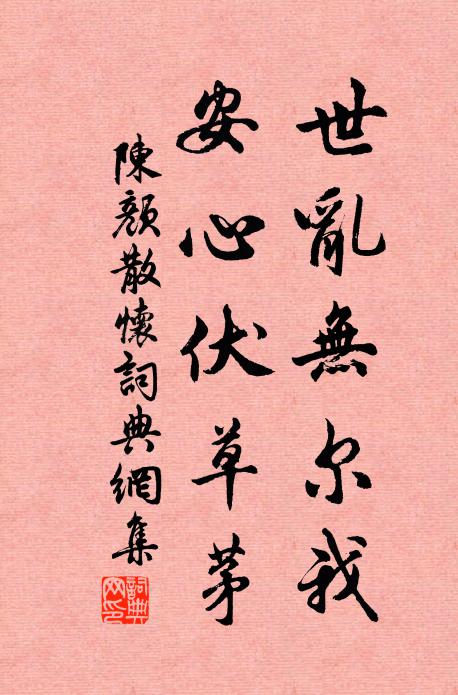 世亂無尔我
安心伏草茅
陳顏散懷詞典網集
詞典網印